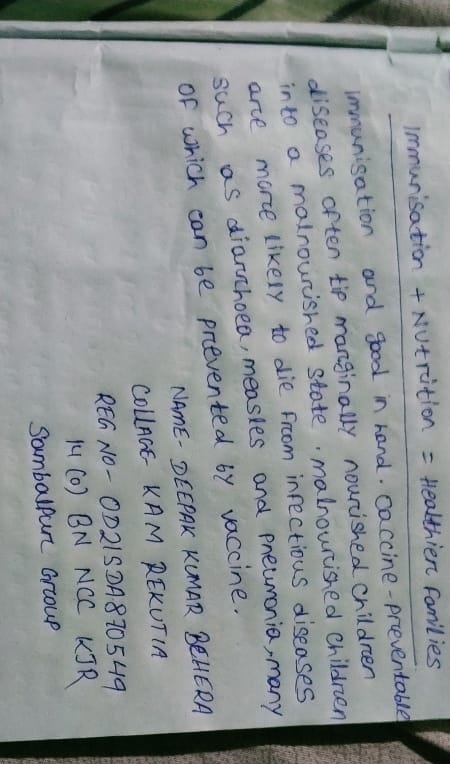 Immunisation + Nutrition = Healthier families
immunisation and good in hand. Caccine-preventable
diseases often tip marginally nourished children
into a malnourished state, malnourished children
are more likely to die from infectious diseases
such as diarrhoea, measles and pneumonia, many
of which can be prevented by vaccine.
NAME- DEEPAK KUMAR BEHERA
COLLAGE- KAM REKUTIA
REG NO- OD21SDA870549
14 (O) BN NCC KJR
Sambalpur Group